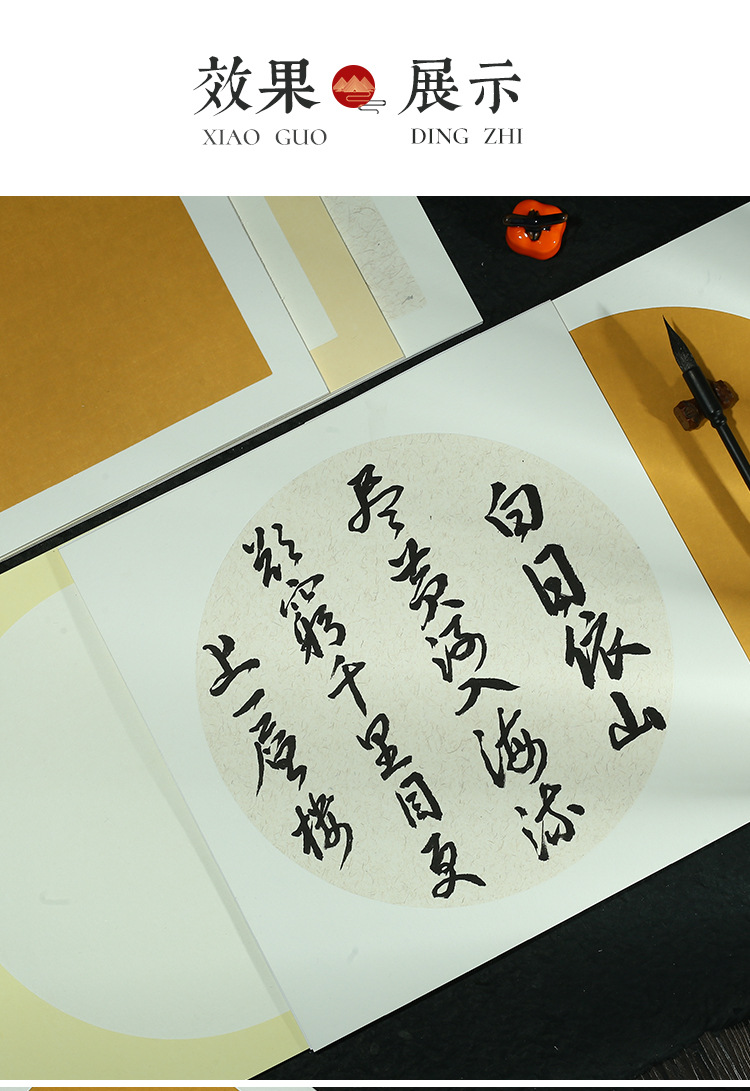 效果 展示
XIAO GUO DING ZHI
白日依山
尽黄河入海流
欲穷千里目更
上一层楼